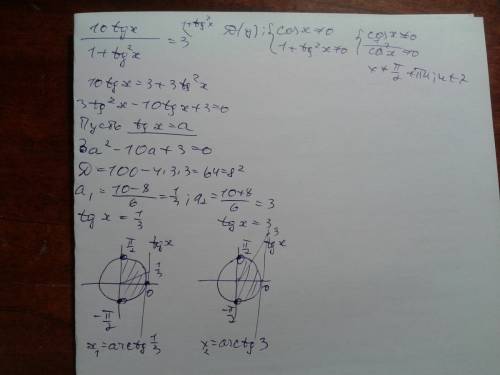 10tgx / 1+tg²x = 3 \1+tg²x D(y): { cosx≠0 { cosx≠0
{ 1+tg²x≠0 { 1/cos²x≠0
x≠π/2+πn; n∈Z
10tgx=3+3tg²x
3tg²x-10tgx+3=0
Пусть tgx=a
3a²-10a+3=0
D=100-4·3·3=64=8²
a₁=10-8/6=1/3; a₂=10+8/6=3
tgx=1/3 tgx=3
π/2 tgx π/2 3 tgx
1/3
0 0
-π/2 -π/2
x₁=arctg 1/3 x₂=arctg 3